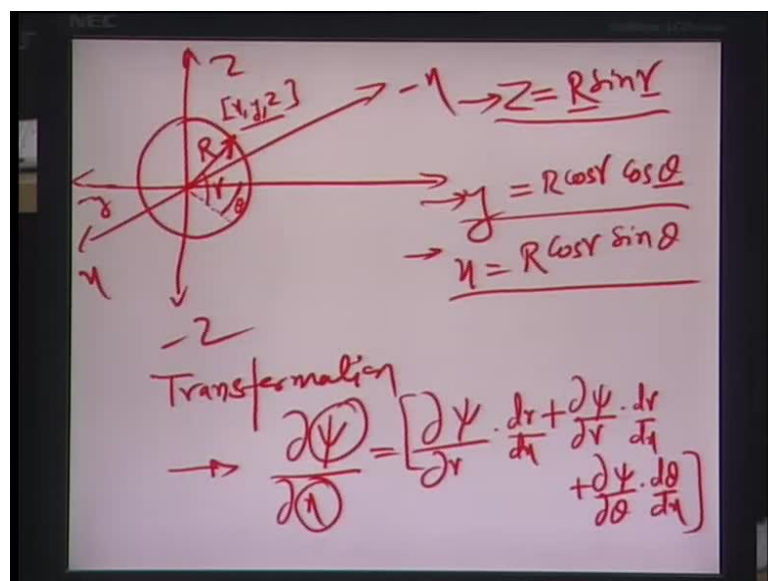 NEC
Z
[x, y, z]
-x → Z = R sin r
R
r
θ
-y
→ y = R cos r cos θ
x
→ x = R cos r sin θ
-Z
Transformation
→ ∂ψ/∂x = [∂ψ/∂r · dr/dx + ∂ψ/∂r · dr/dx
+ ∂ψ/∂θ · dθ/dx]